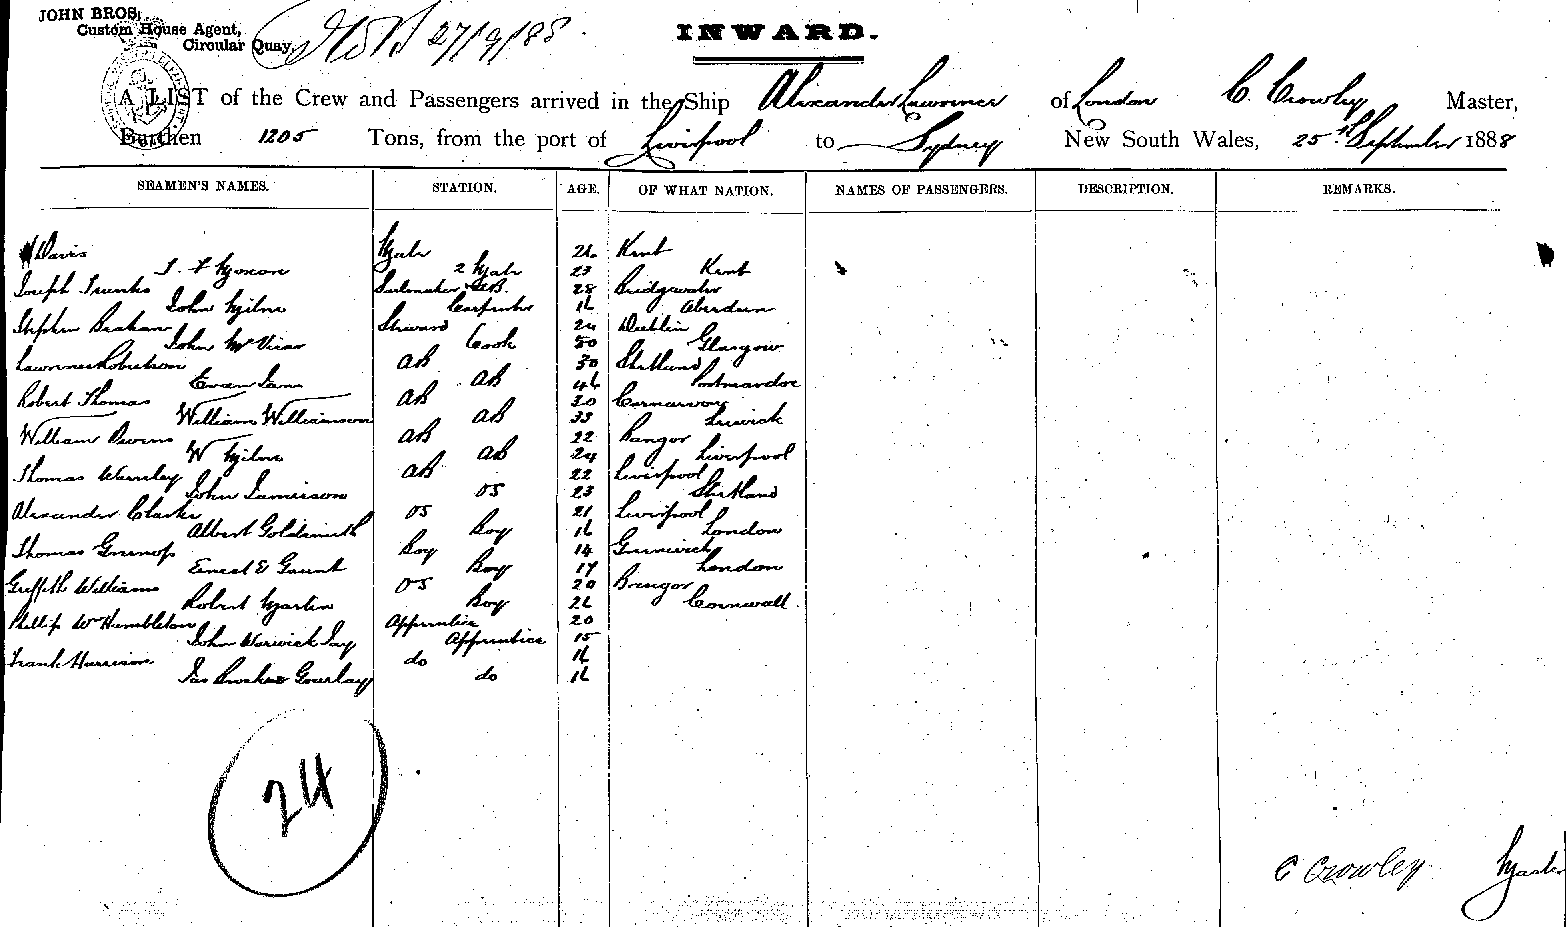 JOHN BROS.
Custom House Agent,
Circular Quay,
27/9/88
INWARD.
A LIST of the Crew and Passengers arrived in the Ship Alexander Lawrence of London C. Crowley Master,
Burthen 1205 Tons, from the port of Liverpool to Sydney New South Wales, 25th September 1888
SEAMEN'S NAMES. STATION. AGE. OF WHAT NATION. NAMES OF PASSENGERS. DESCRIPTION. REMARKS.
Davis Mate Kent
2 Mate 23 Kent
Joseph Sailmaker 28 Bridgwater
John Milne Carpenter Aberdeen
Stephen Steward 24 Dublin
John McVicar Cook 50 Glasgow
Lawrence Robertson AB 30 Shetland
AB 46 Portmadoc
Robert Thomas AB 30 Carnarvon
William Williamson AB 33 Lerwick
William Owens AB 22 Bangor
W Milne AB 24 Liverpool
Thomas AB 22 Liverpool
John Jamieson OS 23 Shetland
Alexander Clarke OS 21 Liverpool
Albert Goldsmith Boy 16 London
Thomas Boy 14 Greenwich
Ernest E Gaunt Boy 17 London
Griffith Williams OS 20 Bangor
Robert Martin Boy Cornwall
Phillip Wm Humbleton Apprentice 20
John Warwick Jay Apprentice 15
Frank Harrison do 16
Jas Gourlay do 16
24
C Crowley Master